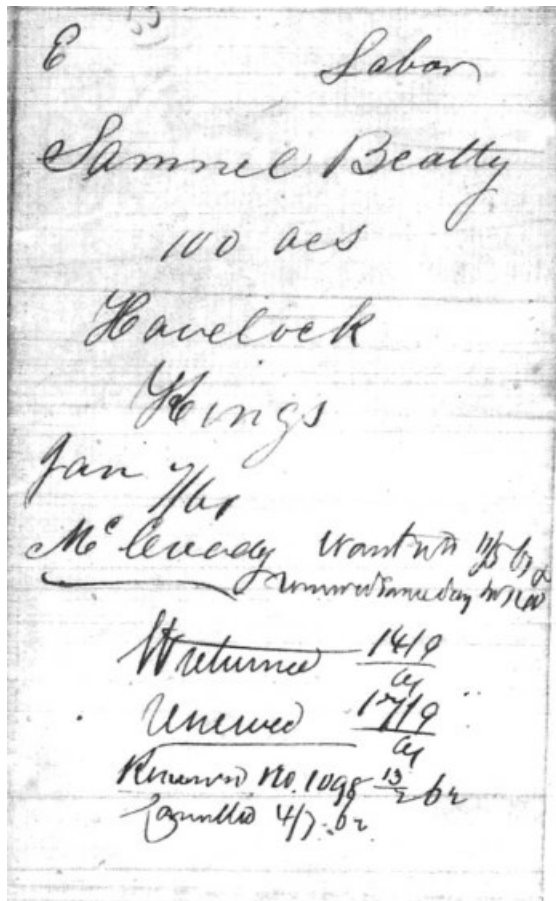 E Labor
Samuel Beatty
100 acs
Havelock
Kings
Jan 7/61
Mc Cready
returned 14/9
Renewed 17/9
Renewed No. 1098 13/2 62
Cancelled 4/7 62